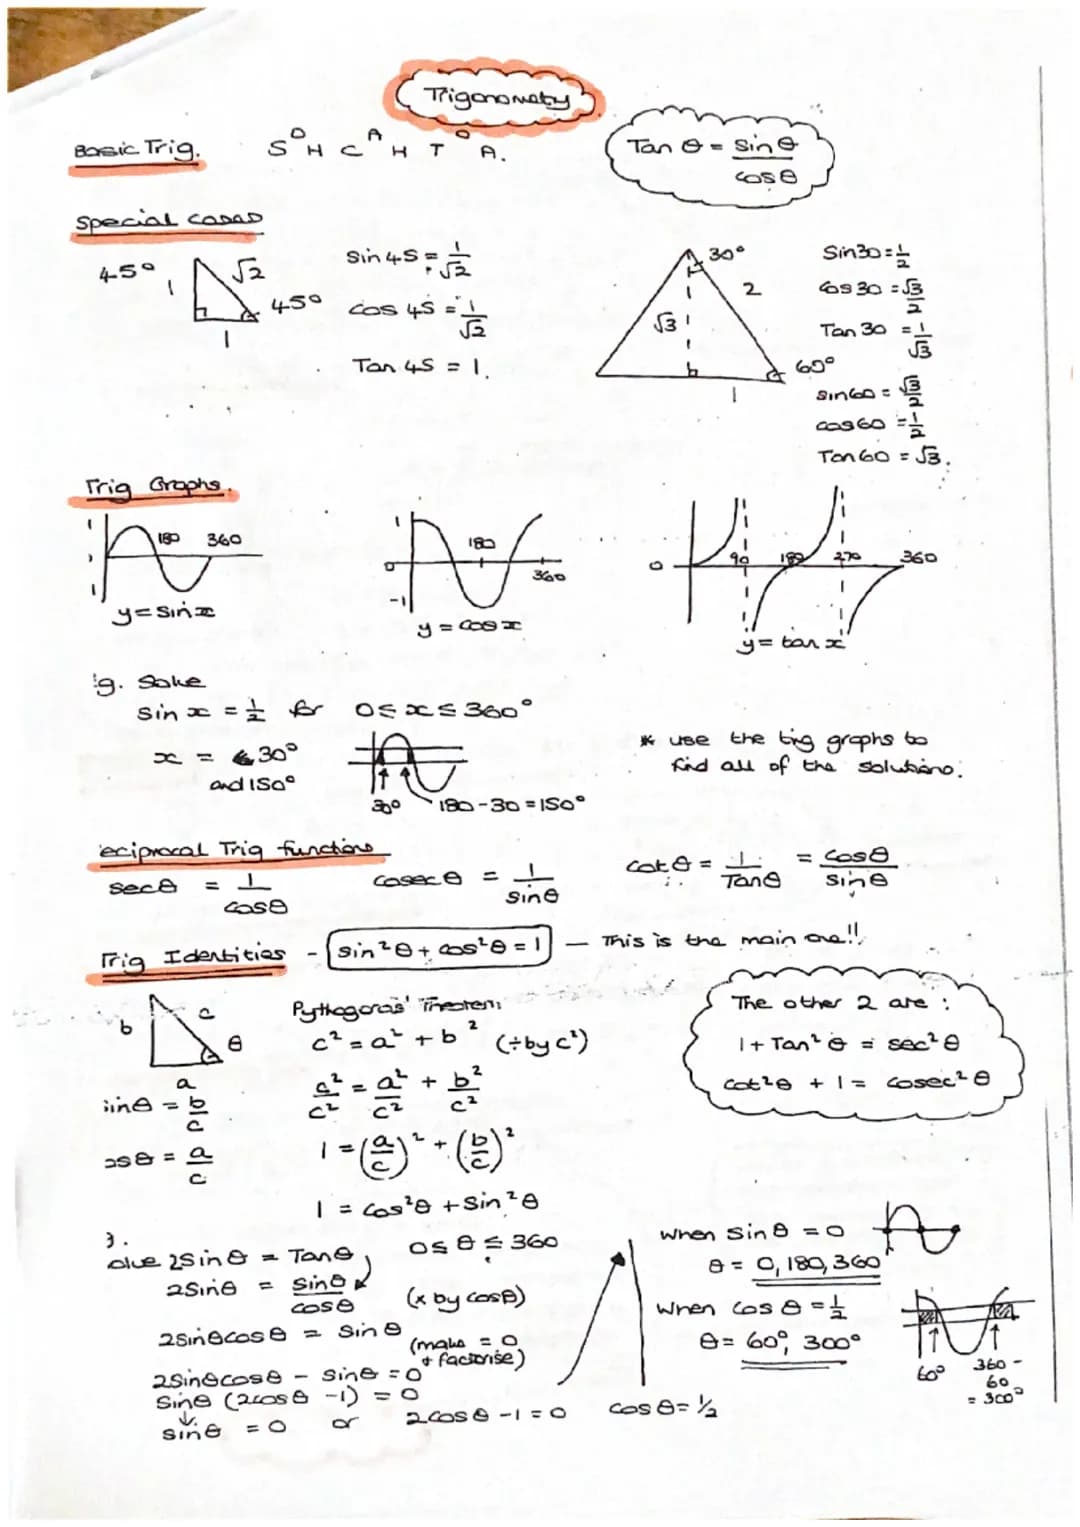 Trigonometry
Basic Trig. S O H C A H T O A.
Tan θ = sin θ / cos θ
Special cases
45° 1 √2 45° 1
Sin 45 = 1/√2
cos 45 = 1/√2
Tan 45 = 1.
30° 2 √3 60° 1
Sin 30 = 1/2
cos 30 = √3/2
Tan 30 = 1/√3
sin 60 = √3/2
cos 60 = 1/2
Tan 60 = √3.
Trig Graphs.
1 180 360
y = sin x
1 0 -1 180 360
y = cos x
0 90 180 270 360
y = tan x
g. Solve
sin x = 1/2 for 0 ≤ x ≤ 360°
x = 30°
and 150°
30° 180 - 30 = 150°
* use the trig graphs to
find all of the solutions.
eciprocal Trig functions
sec θ = 1/cos θ
cosec θ = 1/sin θ
cot θ = 1/Tan θ = cos θ/sin θ
Trig Identities - sin²θ + cos²θ = 1 — This is the main one!!
b c θ a
Pythagoras' Theorem:
c² = a² + b² (÷ by c²)
c²/c² = a²/c² + b²/c²
1 = (a/c)² + (b/c)²
1 = cos²θ + sin²θ
sin θ = b/c
os θ = a/c
The other 2 are :
1 + Tan²θ = sec²θ
cot²θ + 1 = cosec²θ
olve 2 sin θ = Tan θ, 0 ≤ θ ≤ 360
2 sin θ = sin θ / cos θ (x by cos θ)
2 sin θ cos θ = sin θ
(make = 0
+ factorise)
2 sin θ cos θ - sin θ = 0
sin θ (2 cos θ - 1) = 0
sin θ = 0 or 2 cos θ - 1 = 0 cos θ = 1/2
when sin θ = 0
θ = 0, 180, 360
when cos θ = 1/2
θ = 60°, 300°
60° 360 -
60
= 300°